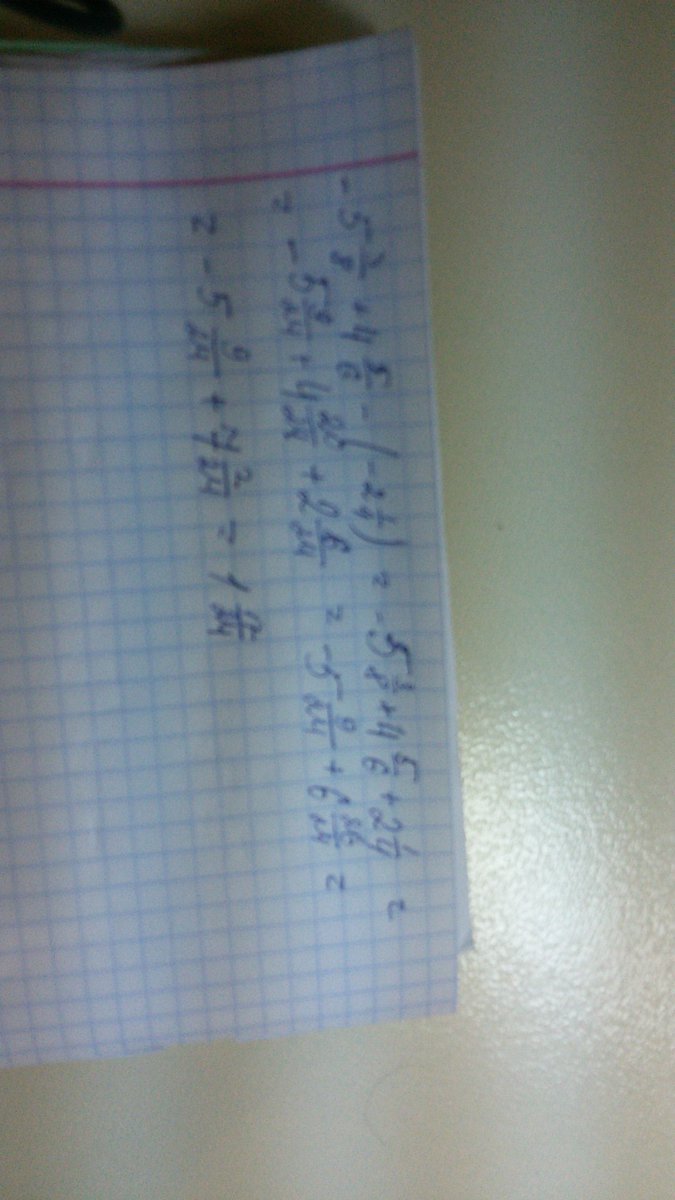 -5 3/8 + 4 5/6 - (-2 1/4) = -5 3/8 + 4 5/6 + 2 1/4 =
= -5 9/24 + 4 20/24 + 2 6/24 = -5 9/24 + 6 26/24 =
= -5 9/24 + 7 2/24 = 1 17/24